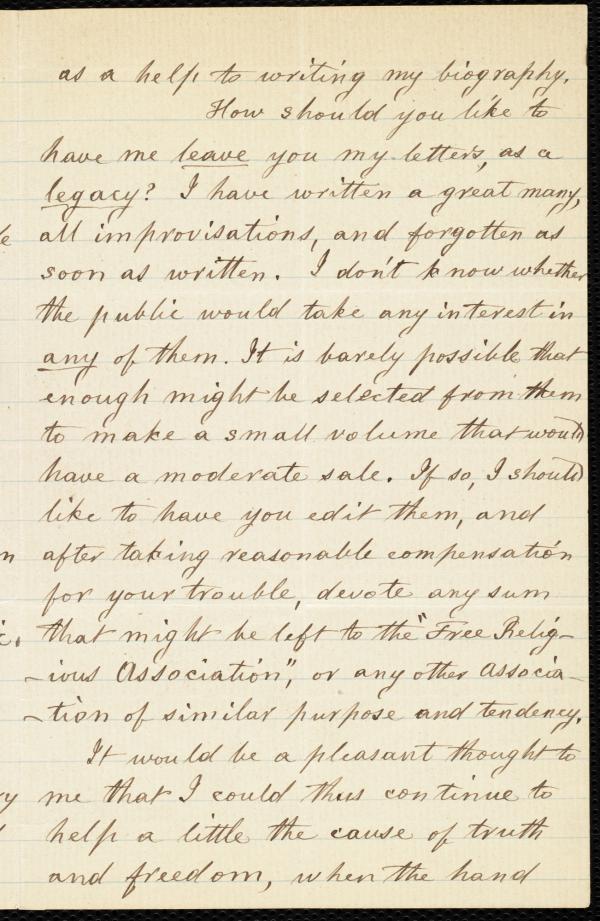 as a help to writing my biography.
How should you like to
have me leave you my letters, as a
legacy? I have written a great many,
all improvisations, and forgotten as
soon as written. I don't know whether
the public would take any interest in
any of them. It is barely possible that
enough might be selected from them
to make a small volume that would
have a moderate sale. If so, I should
like to have you edit them, and
after taking reasonable compensation
for your trouble, devote any sum
that might be left to the "Free Relig-
-ious Association", or any other Associa-
-tion of similar purpose and tendency.
It would be a pleasant thought to
me that I could thus continue to
help a little the cause of truth
and freedom, when the hand